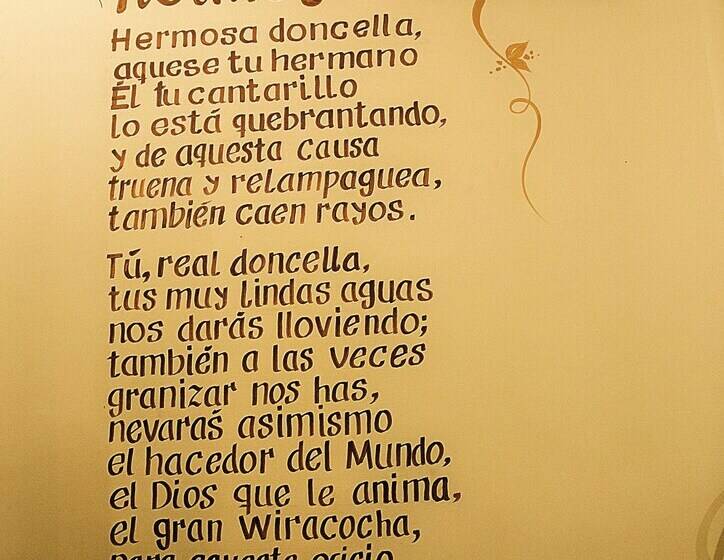 Hermosa doncella,
aquese tu hermano
El tu cantarillo
lo está quebrantando,
y de aquesta causa
truena y relampaguea,
también caen rayos.
Tú, real doncella,
tus muy lindas aguas
nos darás lloviendo;
también a las veces
granizar nos has,
nevaraś asimismo
el hacedor del Mundo,
el Dios que le anima,
el gran Wiracocha,
para aqueste oficio